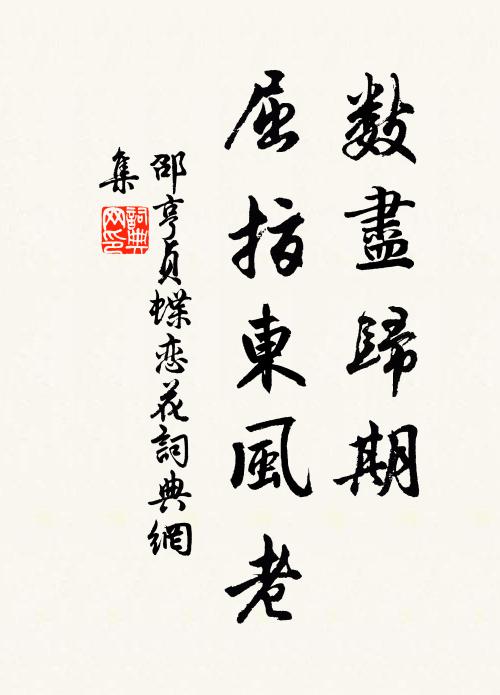 數盡歸期
屈指東風老
邵亨貞蝶恋花詞典網
集
詞典
网印